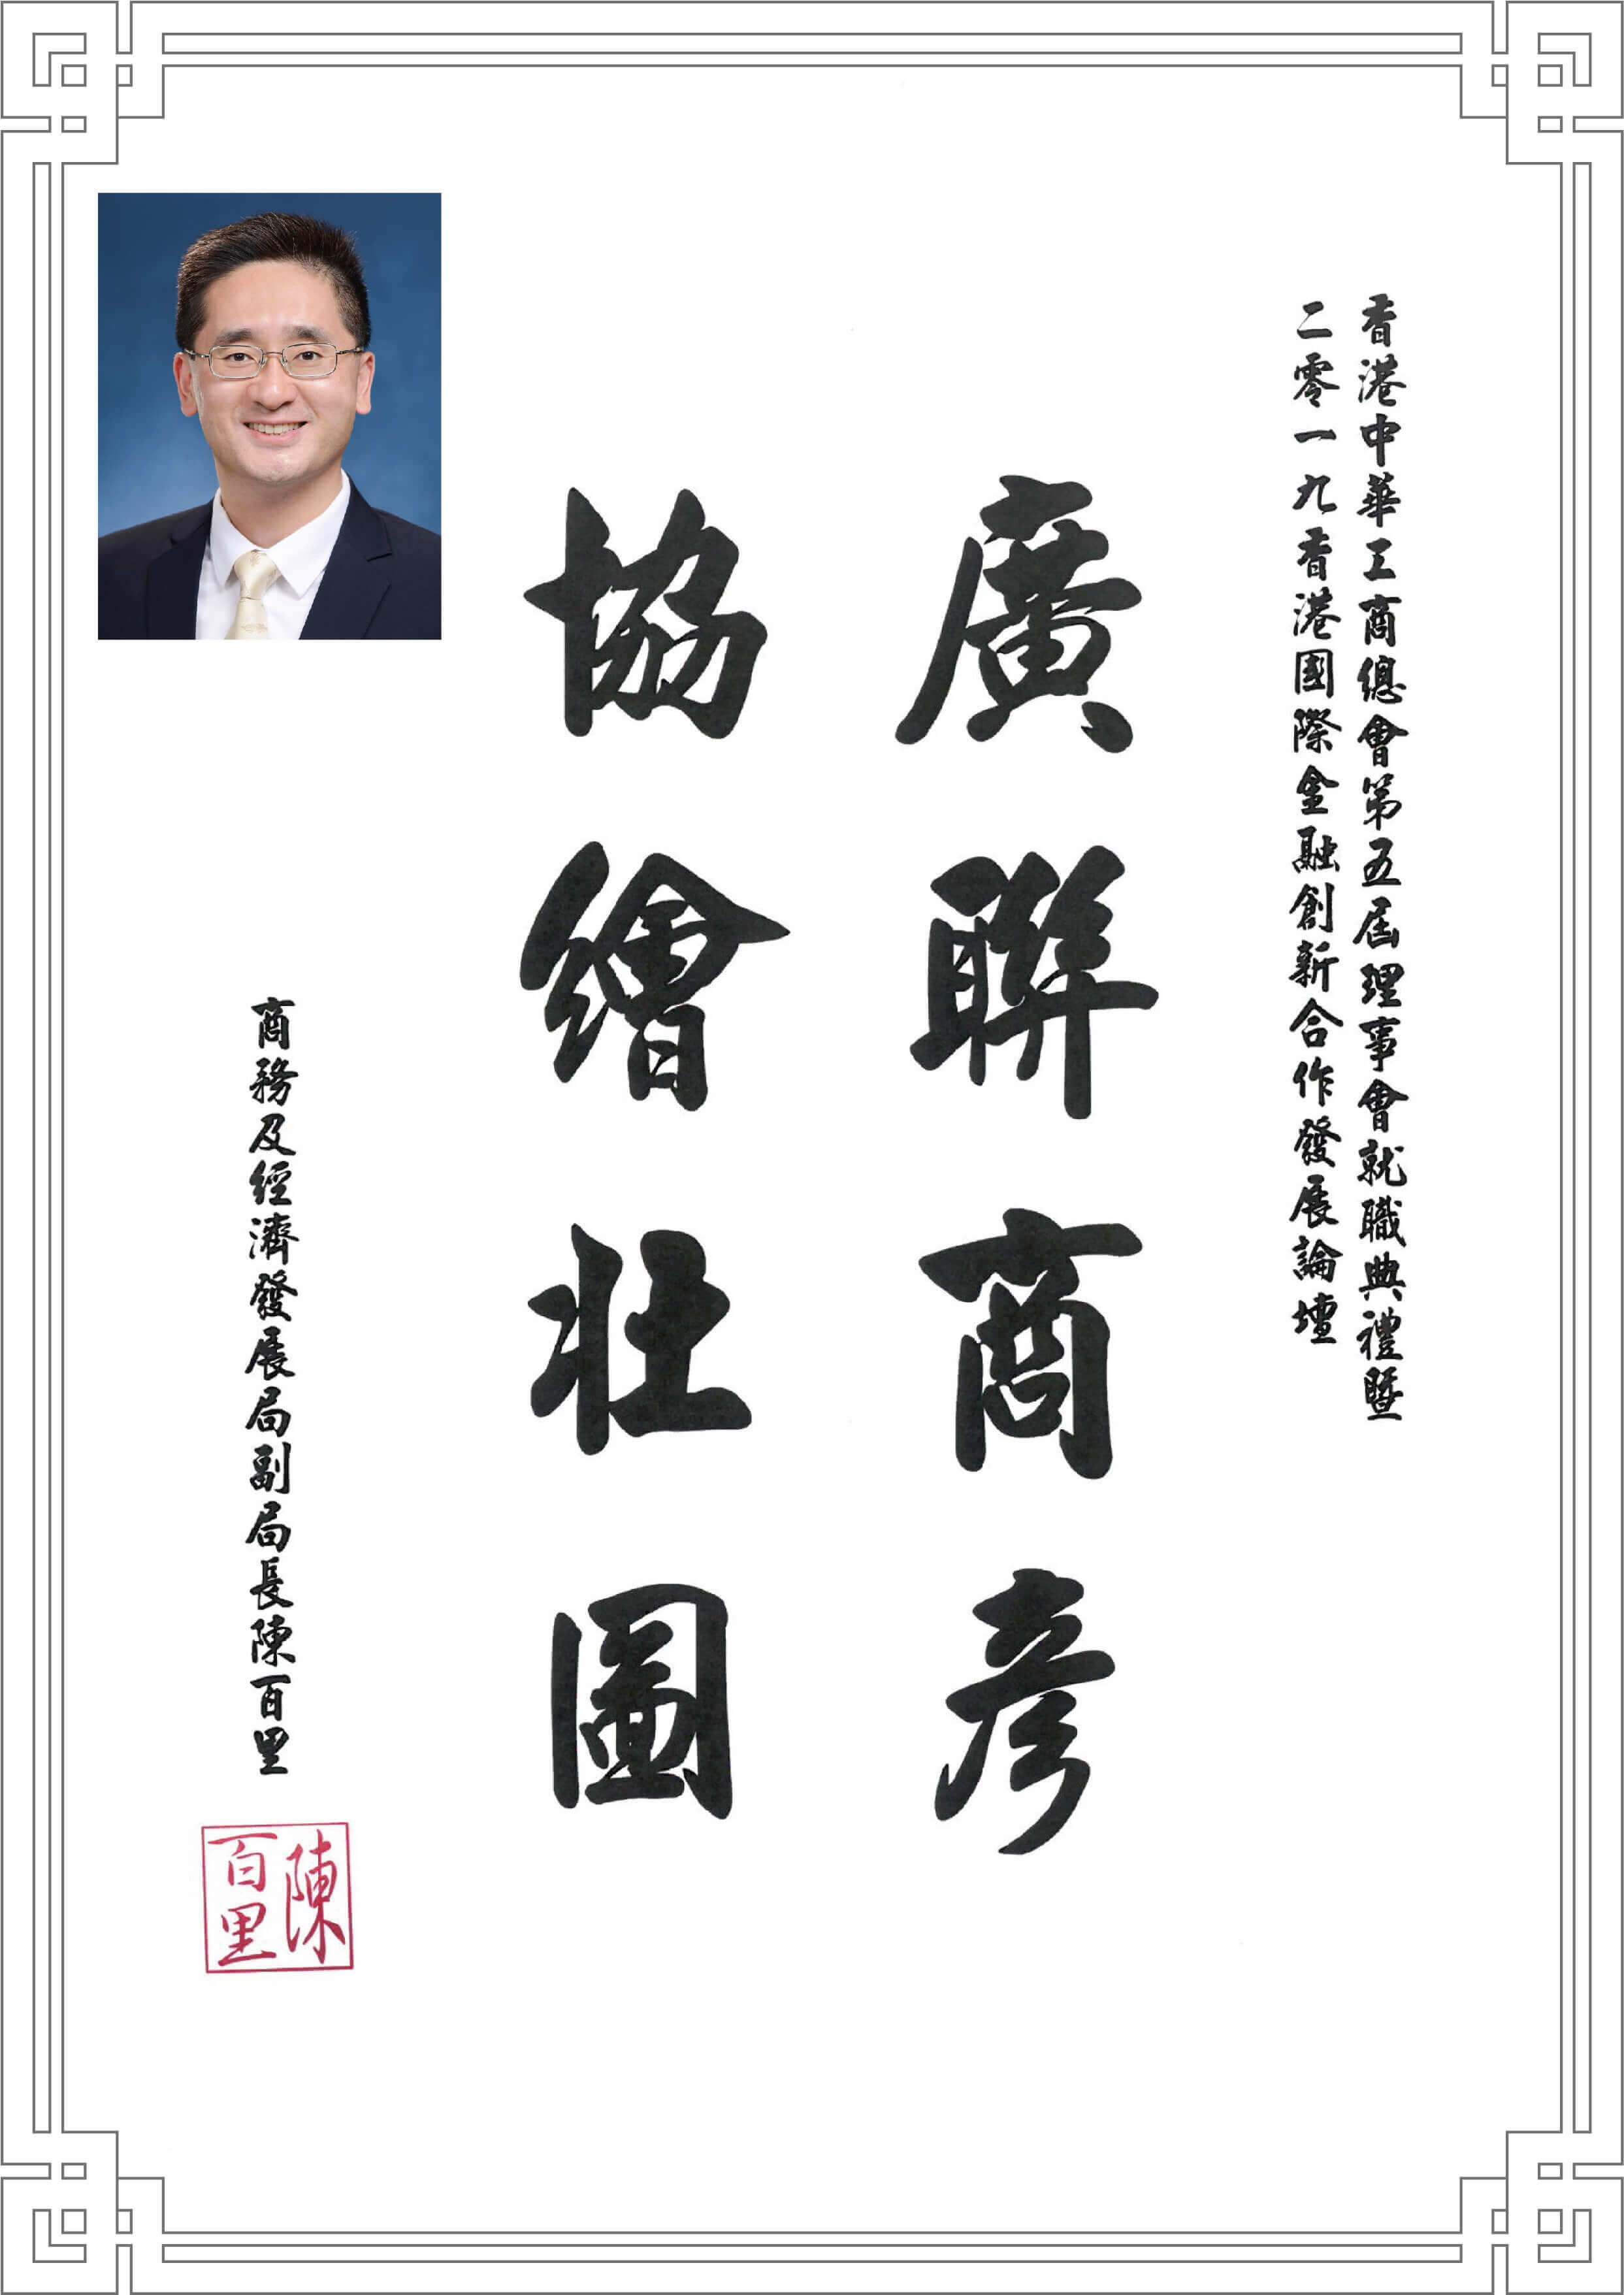 香港中華工商總會第五屆理事會就職典禮暨
二零一九香港國際金融創新合作發展論壇
廣聯商彥
協繪壯圖
商務及經濟發展局副局長陳百里
陳
百里